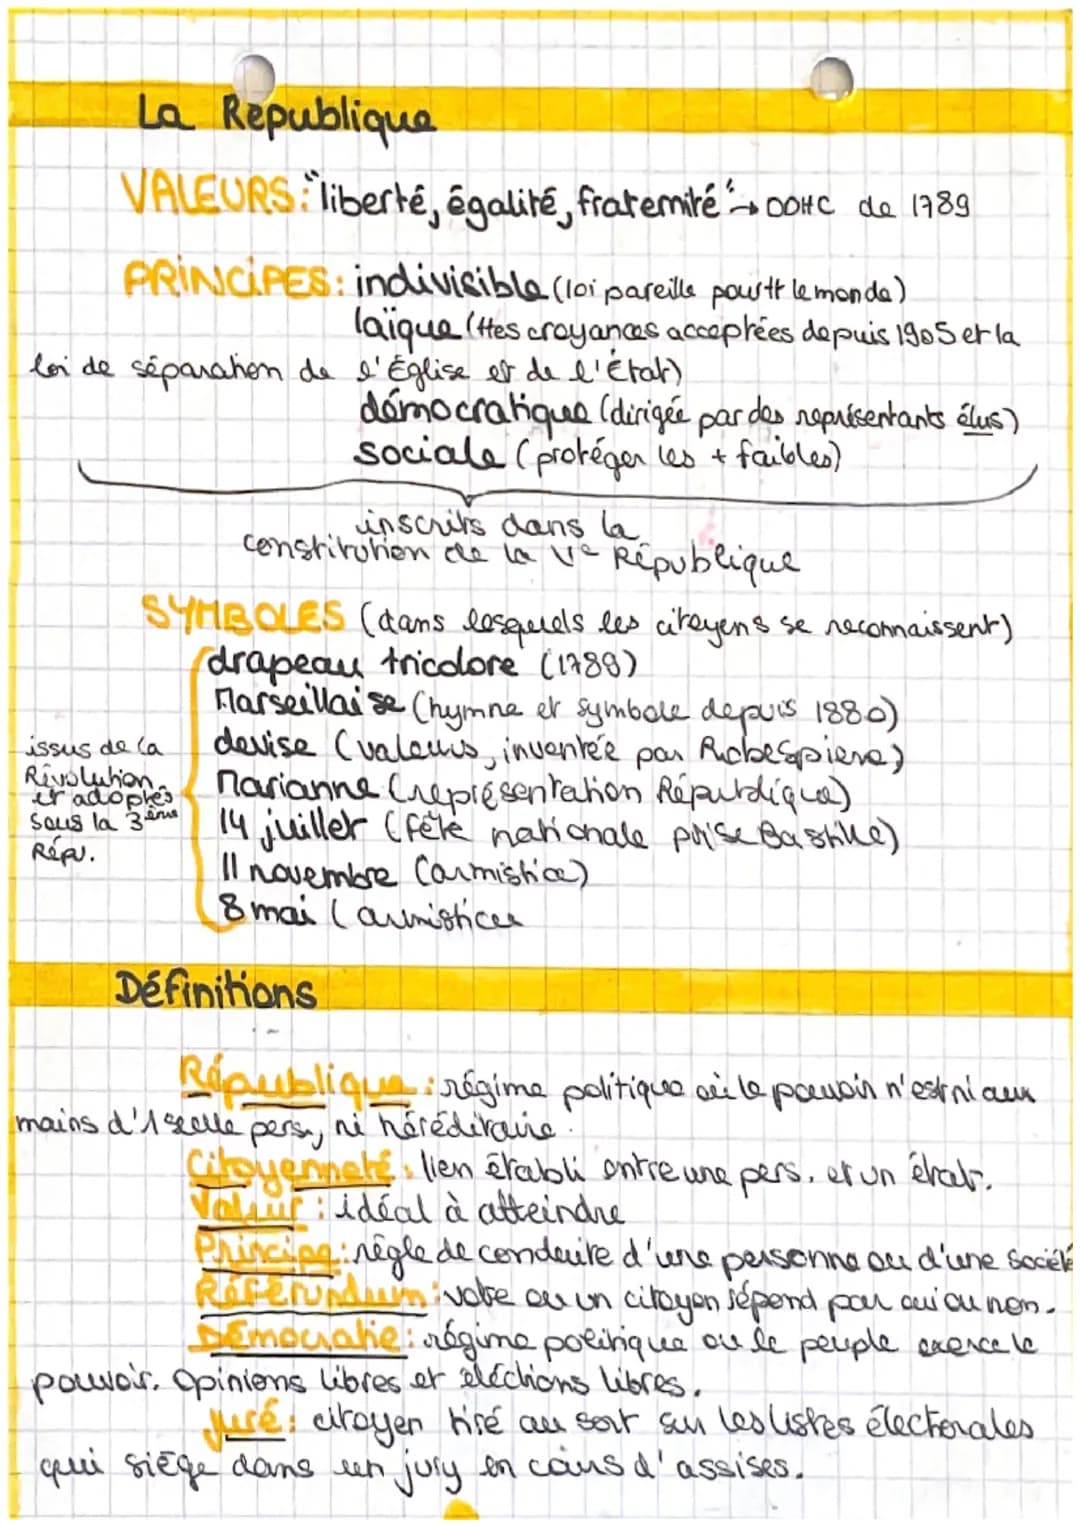 La Republique
VALEURS: "liberté, égalité, fraternité" → DDHC de 1789
PRINCIPES: indivisible (loi pareille pour tt le monde)
laïque (ttes croyances acceptées depuis 1905 et la
loi de séparation de l'Église et de l'État)
démocratique (dirigée par des représentants élus)
sociale (protéger les + faibles)
inscrits dans la
constitution de la Ve République
SYMBOLES (dans lesquels les citoyens se reconnaissent)
drapeau tricolore (1789)
Marseillaise (hymne et symbole depuis 1880)
devise (valeurs, inventée par Robespierre)
Marianne (représentation République)
14 juillet (fête nationale prise Bastille)
11 novembre (armistice)
8 mai (armistice
issus de la
Révolution
et adoptés
sous la 3ème
Répu.
Définitions
République: régime politique où le pouvoir n'est ni aux
mains d'1 seule pers, ni héréditaire.
Citoyenneté: lien établi entre une pers. et un état.
Valeur: idéal à atteindre
Principe: règle de conduite d'une personne ou d'une société
Référundum: vote ou un citoyen répond par oui ou non.
Démocratie: régime politique ou le peuple exerce le
pouvoir. Opinions libres et éléctions libres.
Juré: citoyen tiré au sort sur les listes électorales
qui siège dans un jury en cours d'assises.